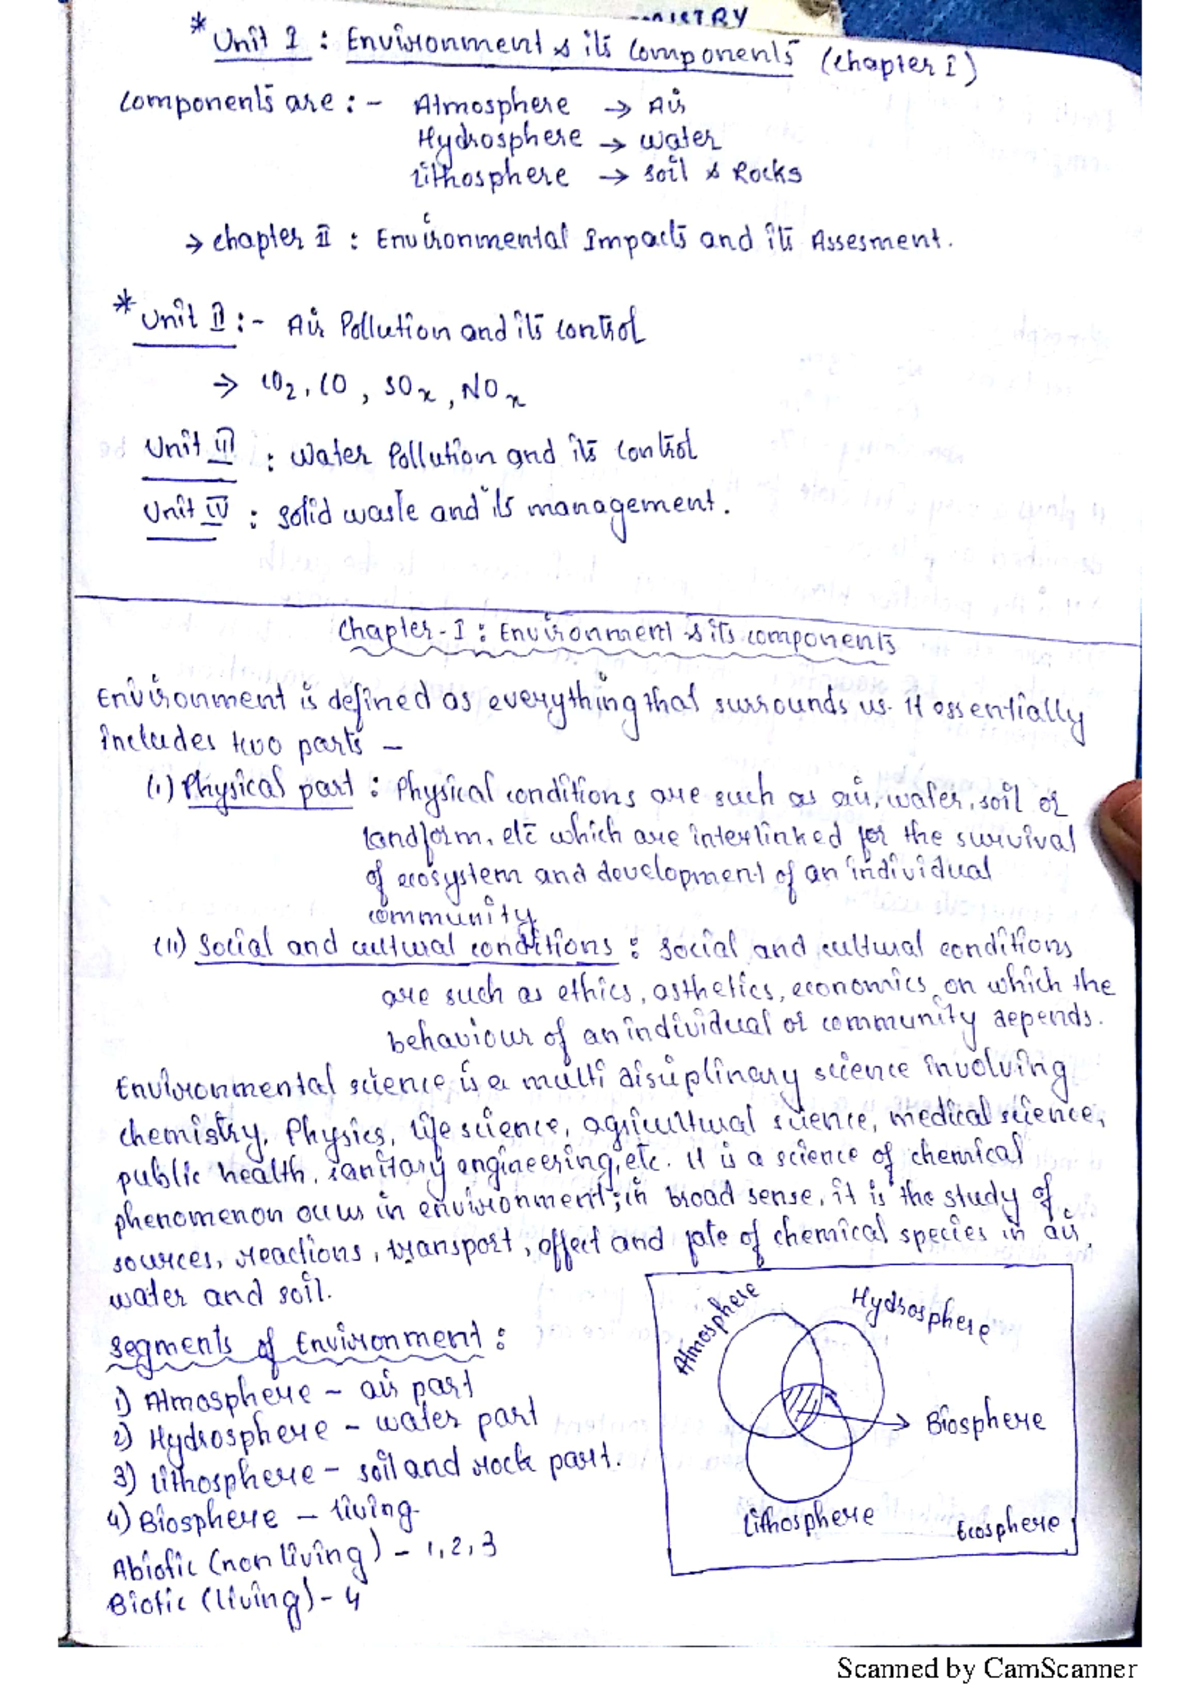 ISTRY
* Unit I : Environment & its Components (Chapter I)
Components are :- Atmosphere → Air
Hydrosphere → water
Lithosphere → Soil & Rocks
→ Chapter II : Environmental Impacts and its Assesment.
* Unit II :- Air Pollution and its control
→ CO2, CO, SOx, NOx
Unit III : Water Pollution and its Control
Unit IV : Solid waste and its management.
Chapter-I : Environment & its components
Environment is defined as everything that surrounds us. It essentially
includes two parts –
(i) Physical part : Physical conditions are such as air, water, soil or
landform, etc which are interlinked for the survival
of ecosystem and development of an individual
community.
(ii) Social and cultural conditions : Social and cultural conditions
are such as ethics, asthetics, economics on which the
behaviour of an individual or community depends.
Environmental science is a multi disciplinary science involving
chemistry, Physics, Life science, agricultural science, medical science,
public health, sanitary engineering, etc. It is a science of chemical
phenomenon occurs in environment; in broad sense, it is the study of
sources, reactions, transport, effect and fate of chemical species in air,
water and soil.
Segments of Environment :
1) Atmosphere – air part
2) Hydrosphere – water part
3) Lithosphere – soil and rock part.
4) Biosphere – living.
Abiotic (non living) – 1, 2, 3
Biotic (living) – 4
Atmosphere
Hydrosphere
Biosphere
Lithosphere
Ecosphere
Scanned by CamScanner